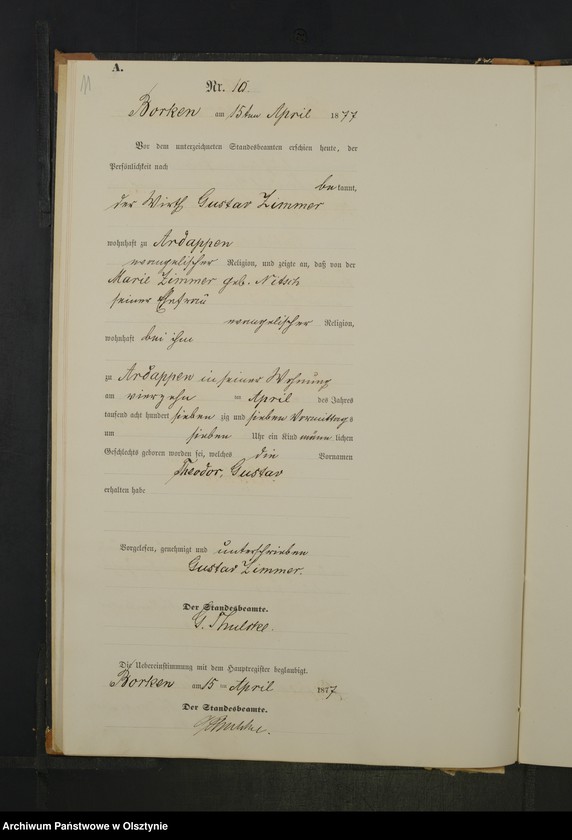 A.
11
Nr. 10.
Borken am 15ten April 1877
Vor dem unterzeichneten Standesbeamten erschien heute, der
Persönlichkeit nach
bekannt,
der Wirth Gustav Zimmer
wohnhaft zu Ardappen
evangelischer Religion, und zeigte an, daß von der
Marie Zimmer geb. Nitsch
seiner Ehefrau
evangelischer Religion,
wohnhaft bei ihm
zu Ardappen in seiner Wohnung
am vierzehn = April des Jahres
tausend acht hundert siebenzig und sieben Vormittags
um sieben Uhr ein Kind männlichen
Geschlechts geboren worden sei, welches die Vornamen
Theodor, Gustav
erhalten habe
Vorgelesen, genehmigt und unterschrieben
Gustav Zimmer.
Der Standesbeamte.
G.
Die Uebereinstimmung mit dem Hauptregister beglaubigt.
Borken am 15 = April 1877.
Der Standesbeamte.
Archiwum Państwowe w Olsztynie